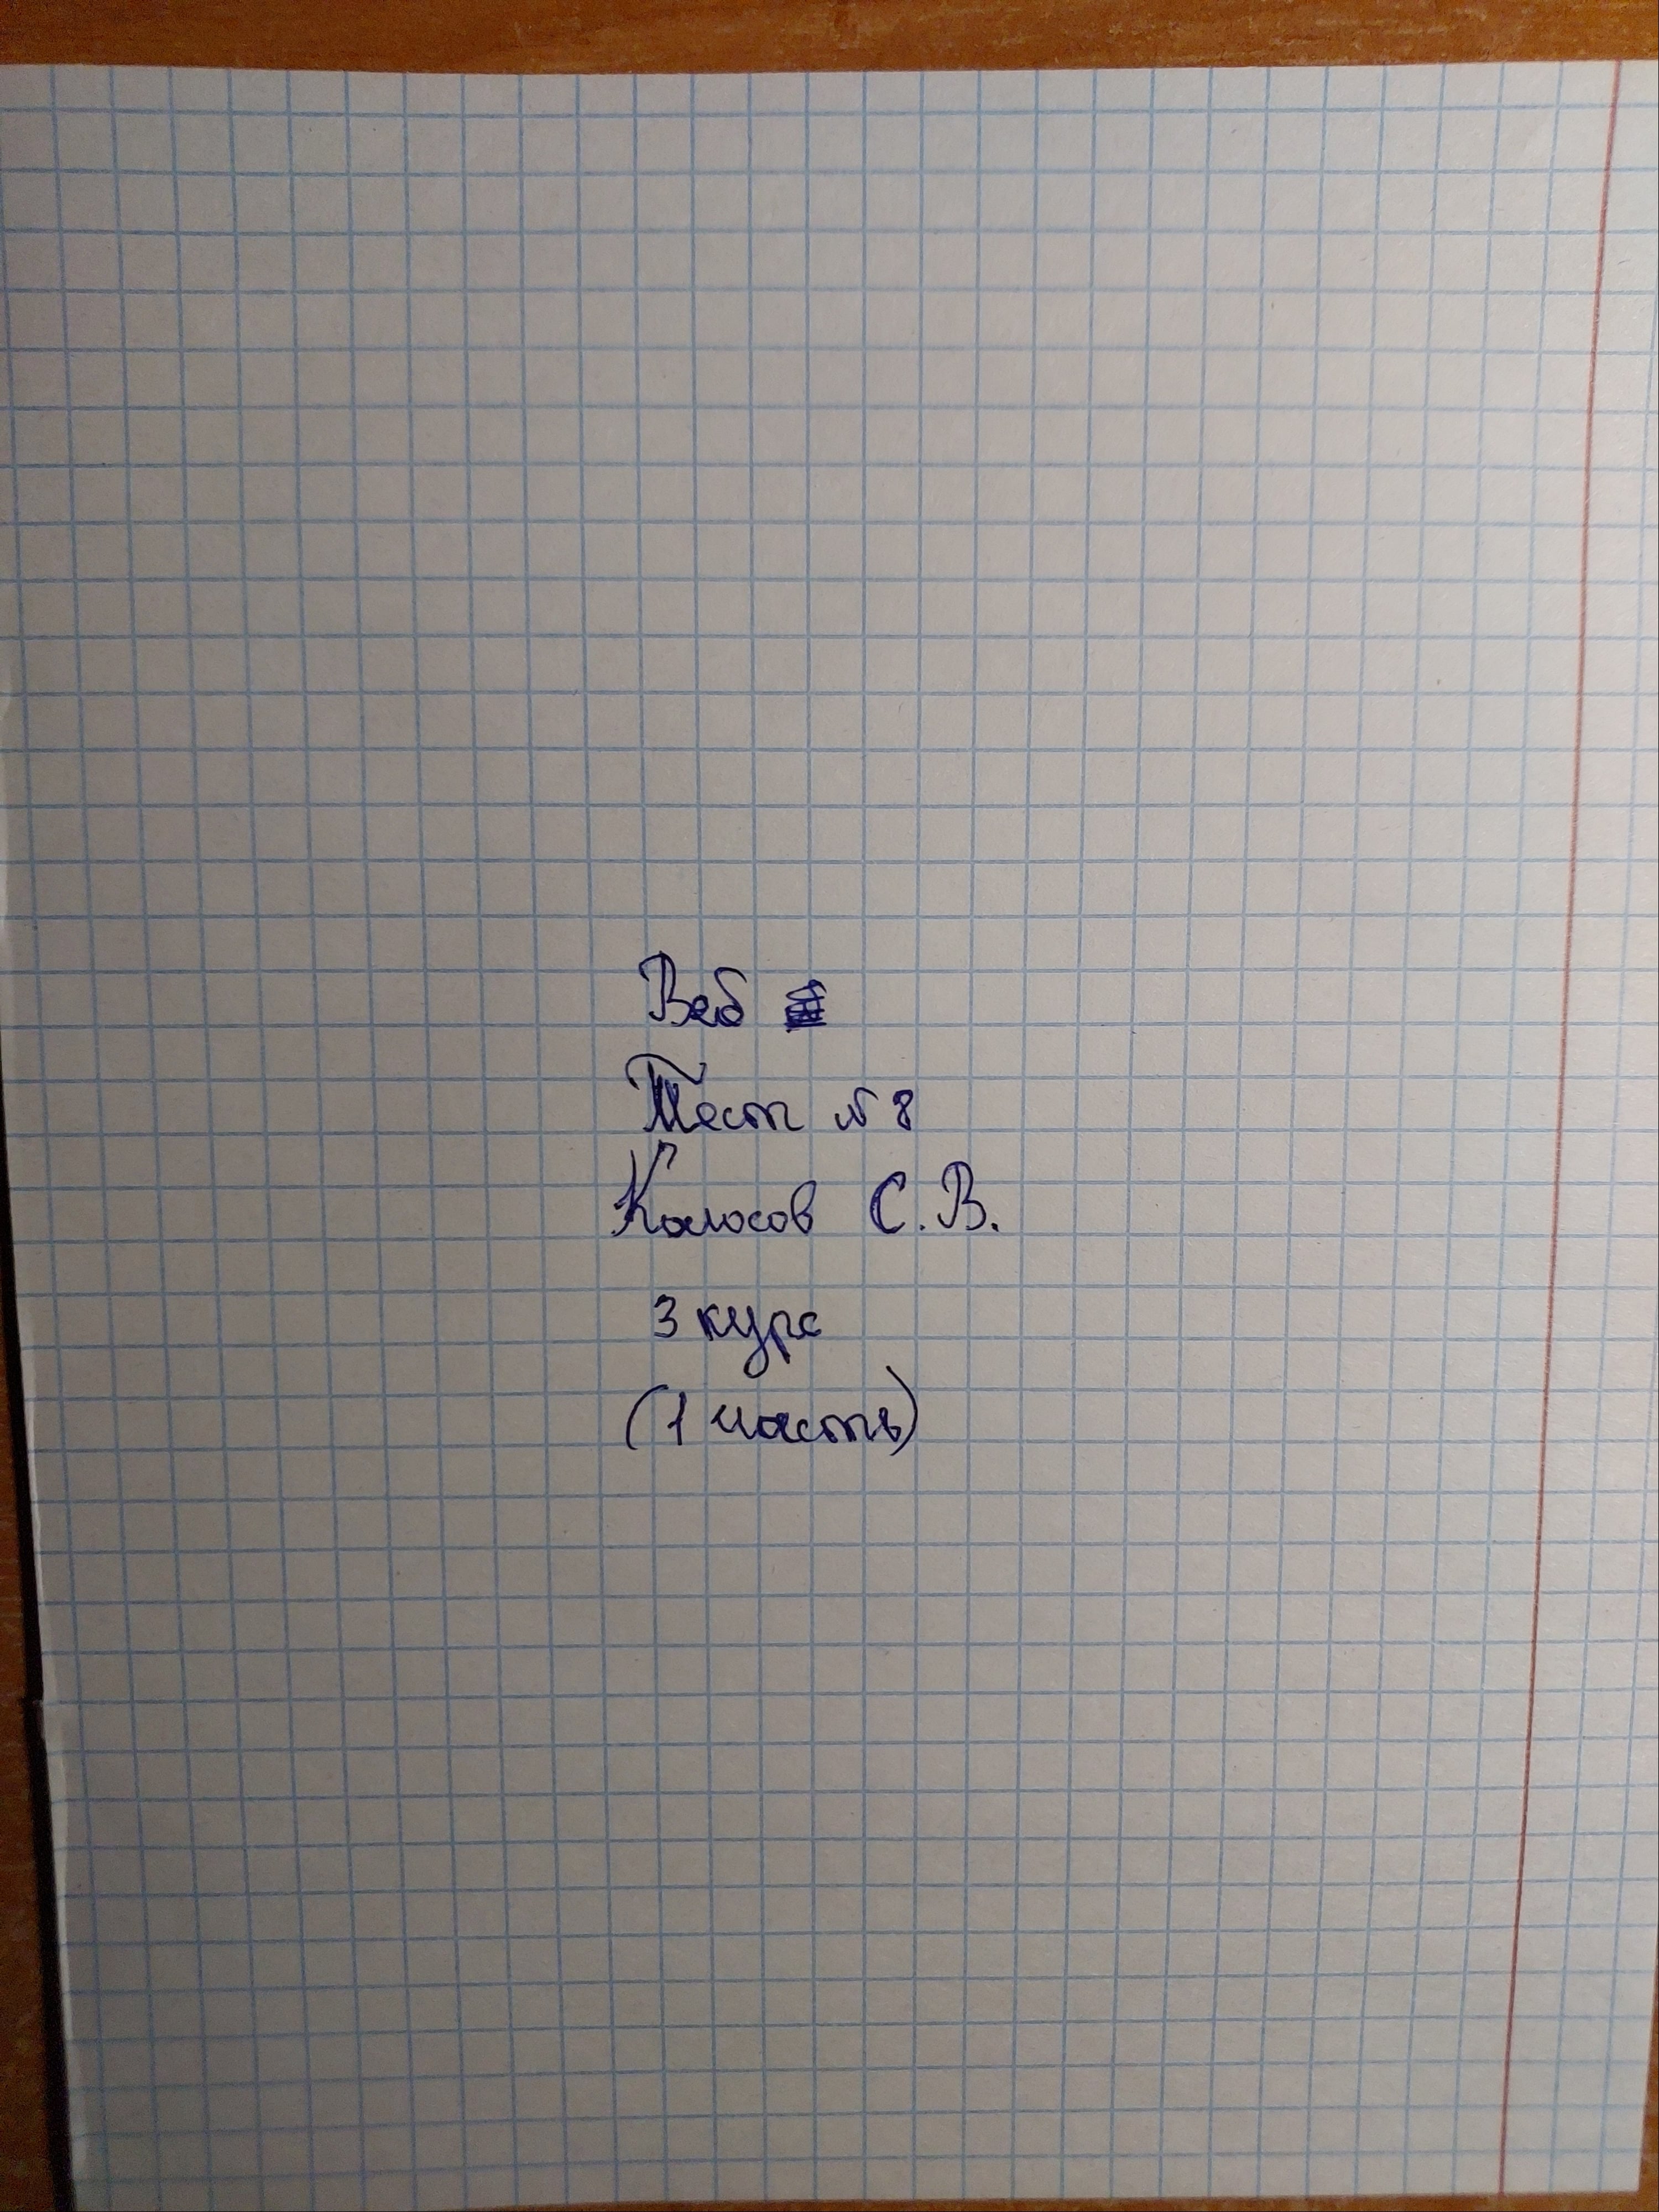 Веб
Тест №8
Колосов С.В.
3 курс
(1 часть)